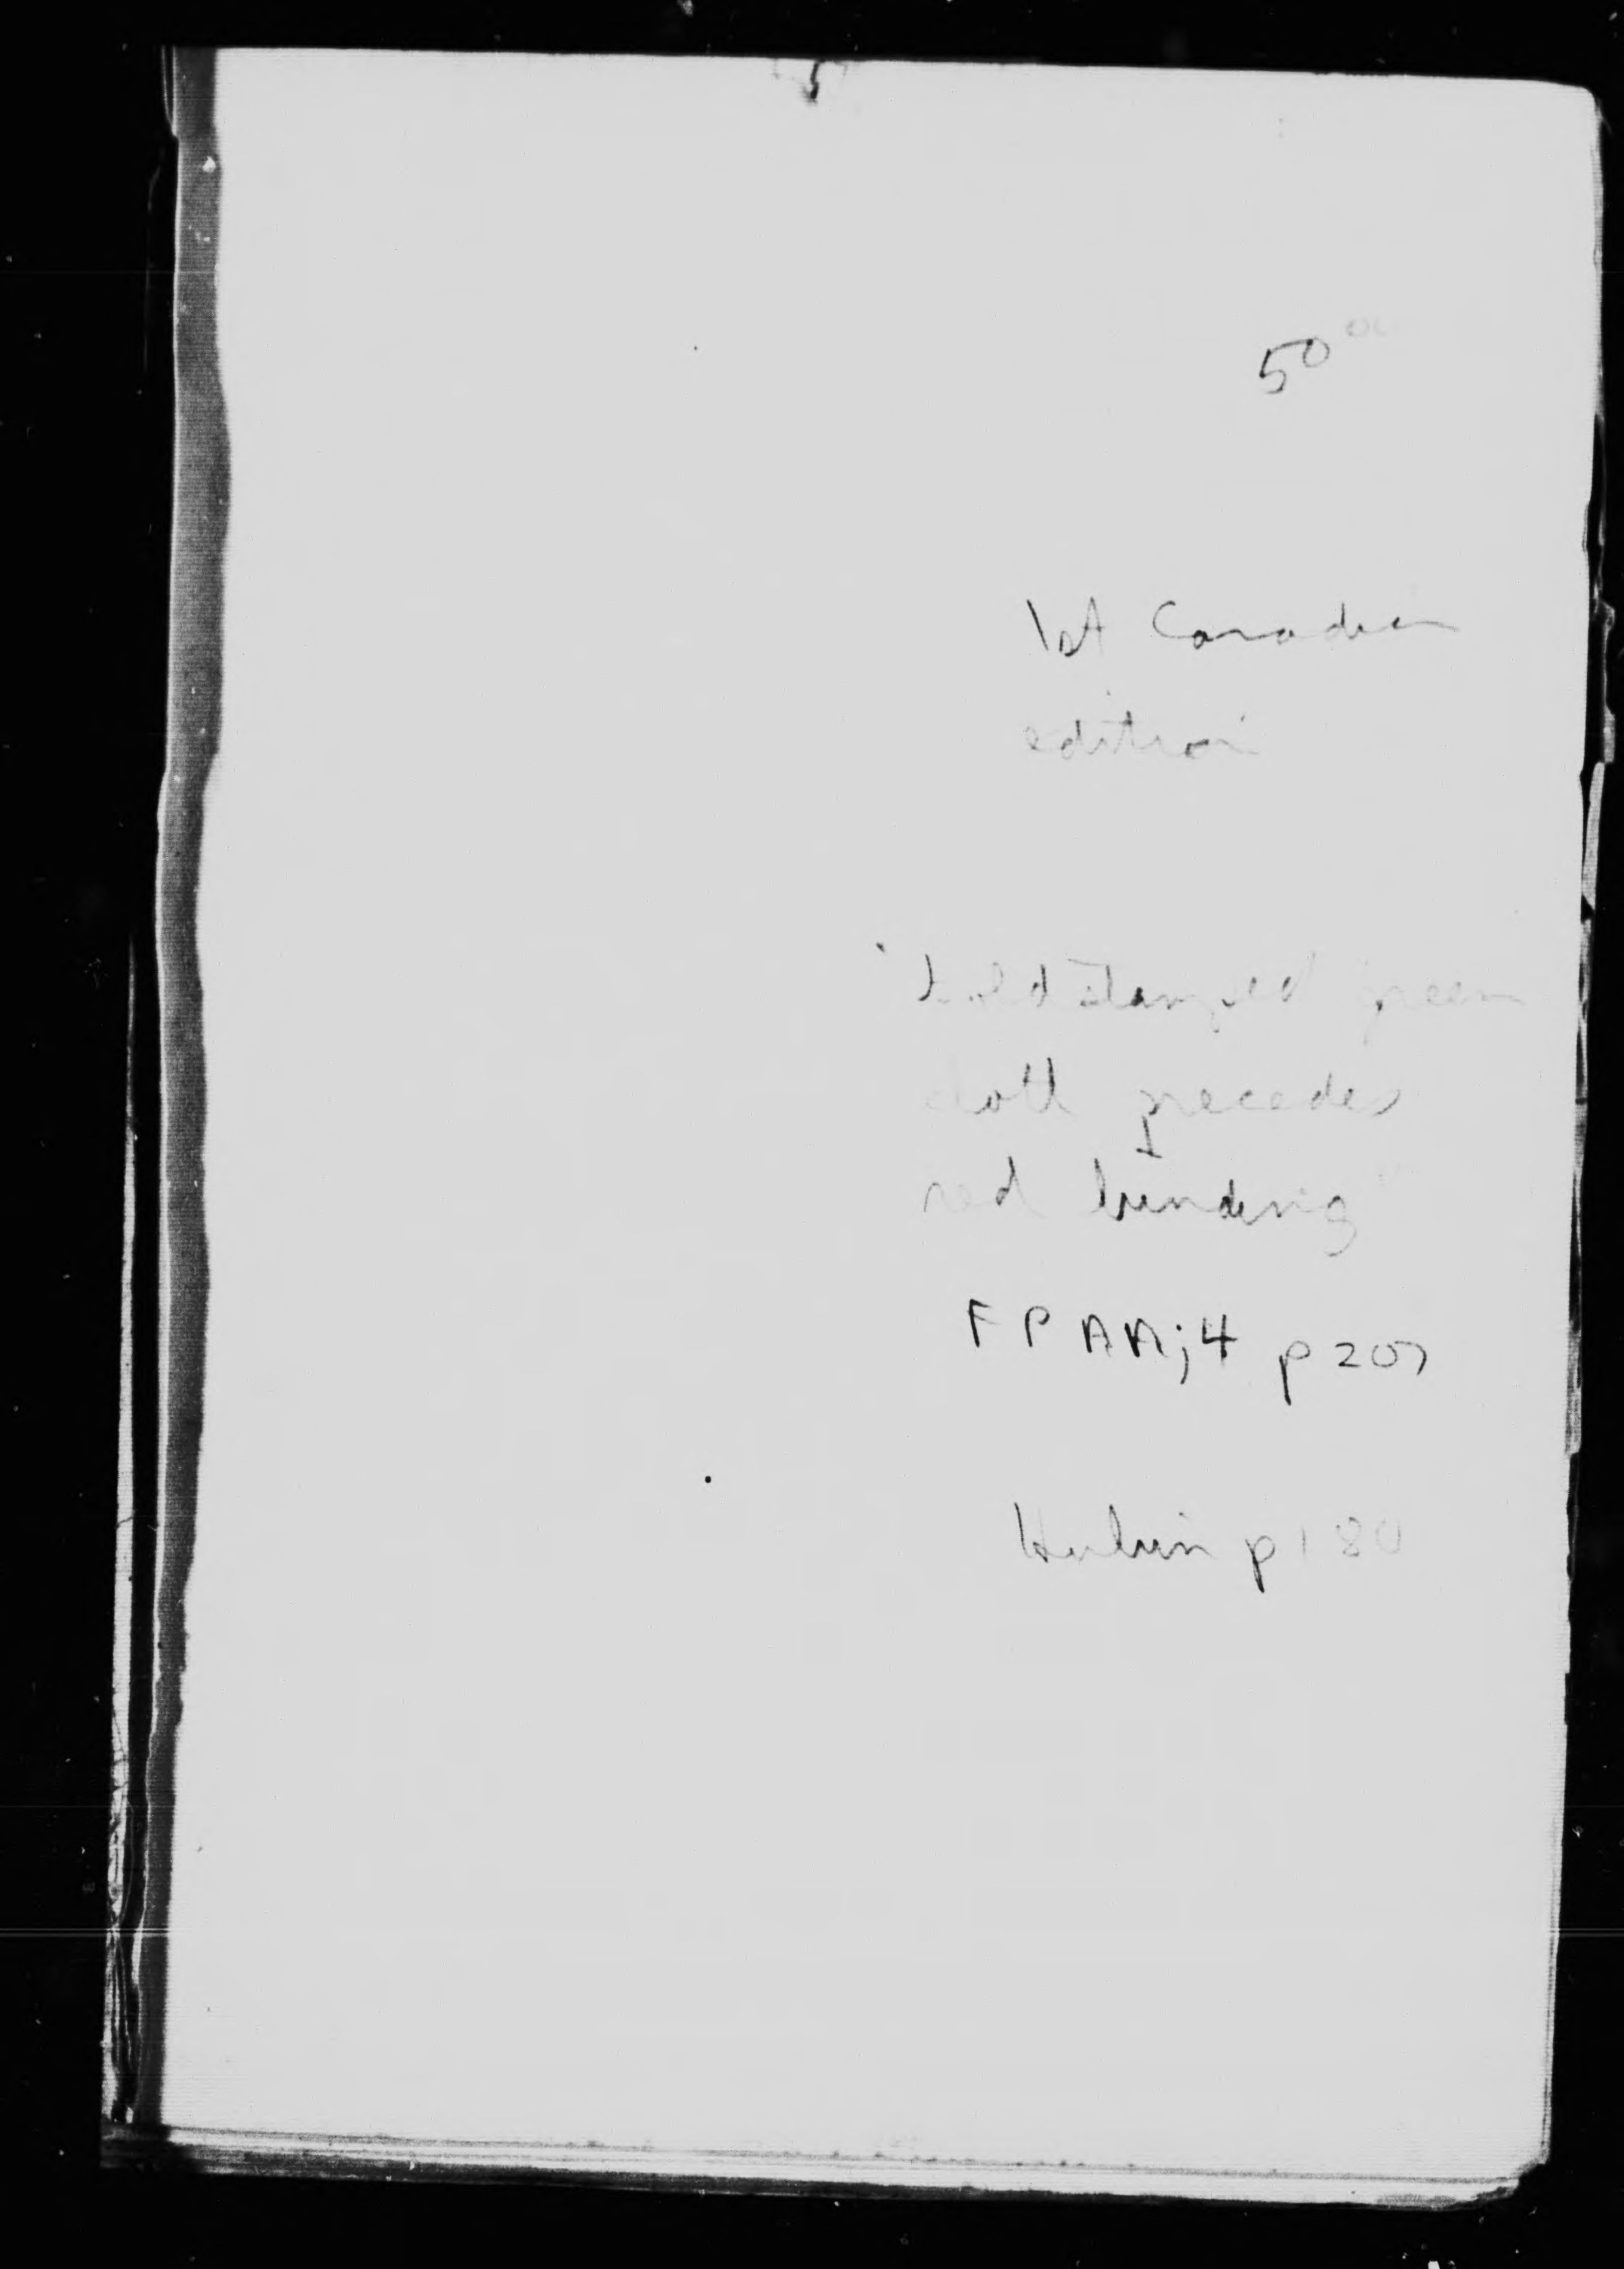 50 00
1st Canadian
edition
"Gold stamped green
cloth precedes
red binding"
FPAA;4 p207
Hubin p180